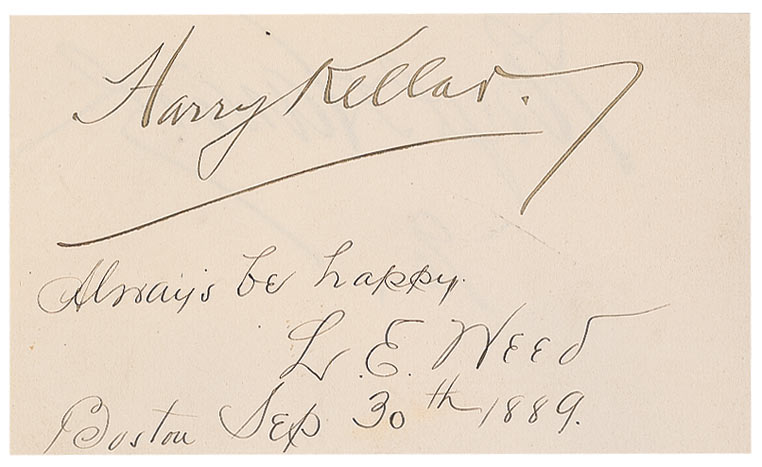 Harry Kellar.
Always be happy.
L. E. Weed
Boston Sep 30th 1889.